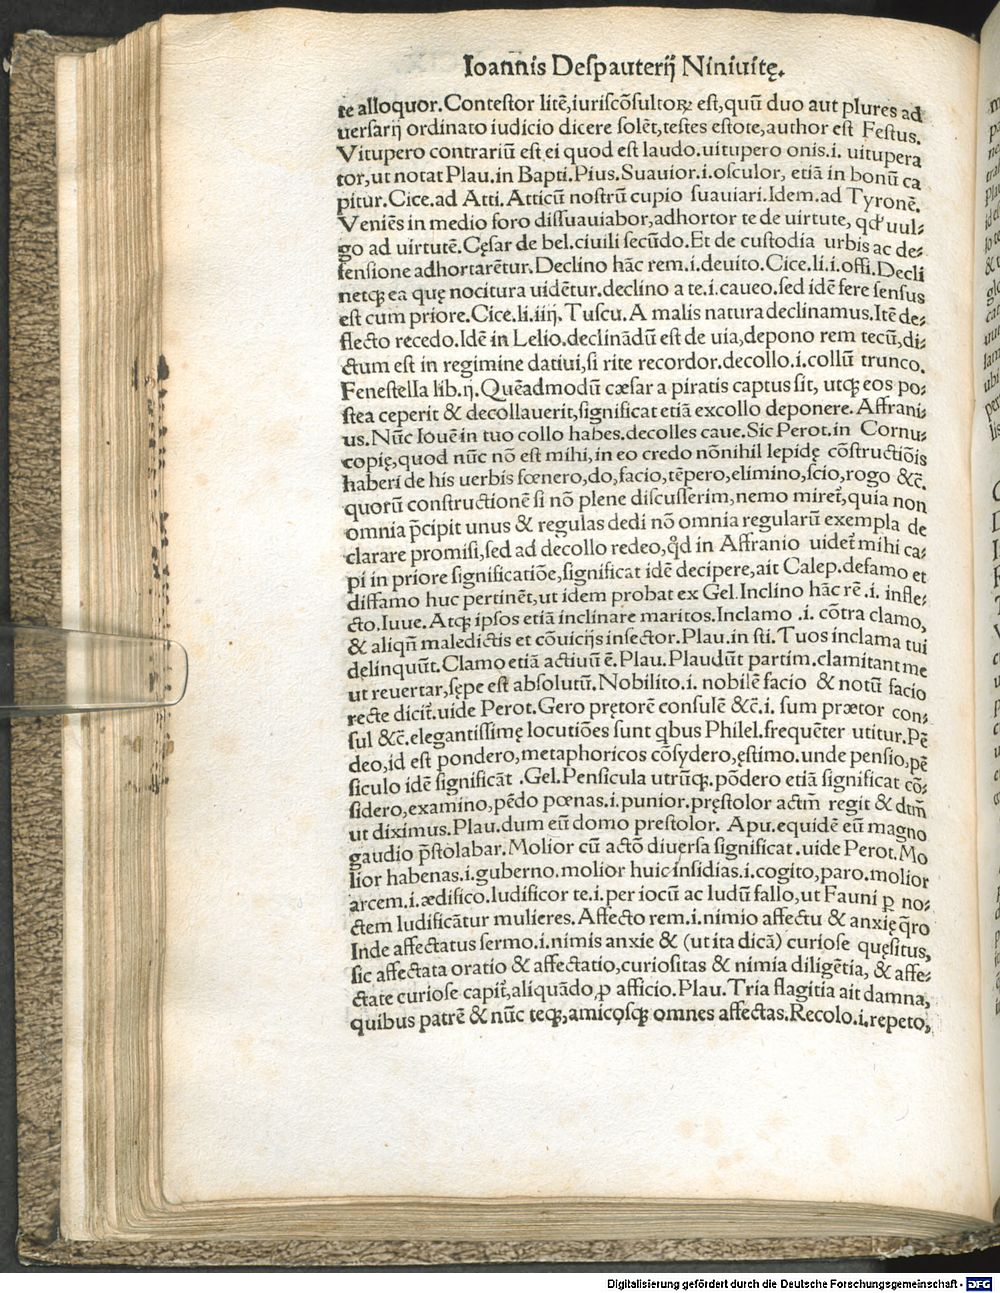 Ioannis Despauterij Niniuitę.
te alloquor. Contestor litē, iuriscōsultoꝝ est, quū duo aut plures ad
uersarij ordinato iudicio dicere solēt, testes estote, author est Festus.
Vitupero contrariū est ei quod est laudo. uitupero onis .i. uitupera
tor, ut notat Plau. in Bapti. Pius. Suauior .i. osculor, etiā in bonū ca
pitur. Cice. ad Atti. Atticū nostrū cupio suauiari. Idem. ad Tyronē.
Veniēs in medio foro dissuauiabor, adhortor te de uirtute, qđ uul⸗
go ad uirtutē. Cęsar de bel. ciuili secūdo. Et de custodia urbis ac de⸗
fensione adhortarētur. Declino hāc rem .i. deuito. Cice. li. i. offi. Decli
netqꝫ ea quę nocitura uidētur. declino a te .i. caueo. sed idē fere sensus
est cum priore. Cice. li. iiij. Tuscu. A malis natura declinamus. Itē de⸗
flecto recedo. Idē in Lelio. declinādū est de uia, depono rem tecū, di⸗
ctum est in regimine datiui, si rite recordor. decollo .i. collū trunco.
Fenestella lib. ij. Quēadmodū cæsar a piratis captus sit, utqꝫ eos po⸗
stea ceperit & decollauerit, significat etiā excollo deponere. Affrani⸗
us. Nūc Iouē in tuo collo habes. decolles caue. Sic Perot. in Cornu⸗
copię, quod nūc nō est mihi, in eo credo nōnihil lepidę cōstructiōis
haberi de his uerbis fœnero, do, facio, tēpero, elimino, scio, rogo &c̄.
quorū constructionē si nō plene discusserim, nemo miret̄, quia non
omnia p̄cipit unus & regulas dedi nō omnia regularū exempla de
clarare promisi, sed ad decollo redeo, qd̄ in Affranio uidet̄ mihi ca⸗
pi in priore significatiōe, significat idē decipere, ait Calep. defamo et
diffamo huc pertinēt, ut idem probat ex Gel. Inclino hāc rē .i. infle⸗
cto. Iuue. Atqꝫ ipsos etiā inclinare maritos. Inclamo .i. cōtra clamo,
& aliqn̄ maledictis et cōuicijs insector. Plau. in sti. Tuos inclama tui
delinquūt. Clamo etiā actiuū ē. Plau. Plaudūt partim. clamitant me
ut reuertar, sępe est absolutū. Nobilito .i. nobilē facio & notū facio
recte dicit̄. uide Perot. Gero prętorē consulē &c̄ .i. sum prætor con⸗
sul &c̄. elegantissimę locutiōes sunt qbus Philel. frequēter utitur. Pē
deo, id est pondero, metaphoricos cōsydero, ęstimo. unde pensio, pē
siculo idē significāt .Gel. Pensicula utrūqꝫ. pōdero etiā significat cō⸗
sidero, examino, pēdo pœnas .i. punior. pręstolor actm̄ regit & dtm̄
ut diximus. Plau. dum eū domo prestolor. Apu. equidē eū magno
gaudio p̄stolabar. Molior cū actō diuersa significat. uide Perot. Mo
lior habenas .i. guberno. molior huic insidias .i. cogito, paro. molior
arcem .i. ædifico. ludificor te .i. per iocū ac ludū fallo, ut Fauni ꝑ no⸗
ctem ludificātur mulieres. Affecto rem .i. nimio affectu & anxię q̄ro
Inde affectatus sermo .i. nimis anxie & (ut ita dicā) curiose quęsitus,
sic affectata oratio & affectatio, curiositas & nimia diligētia, & affe⸗
ctate curiose capit̄, aliquādo, ꝓ afficio. Plau. Tria flagitia ait damna,
quibus patrē & nūc teqꝫ, amicosqꝫ omnes affectas. Recolo .i. repeto,
Digitalisierung gefördert durch die Deutsche Forschungsgemeinschaft - DFG